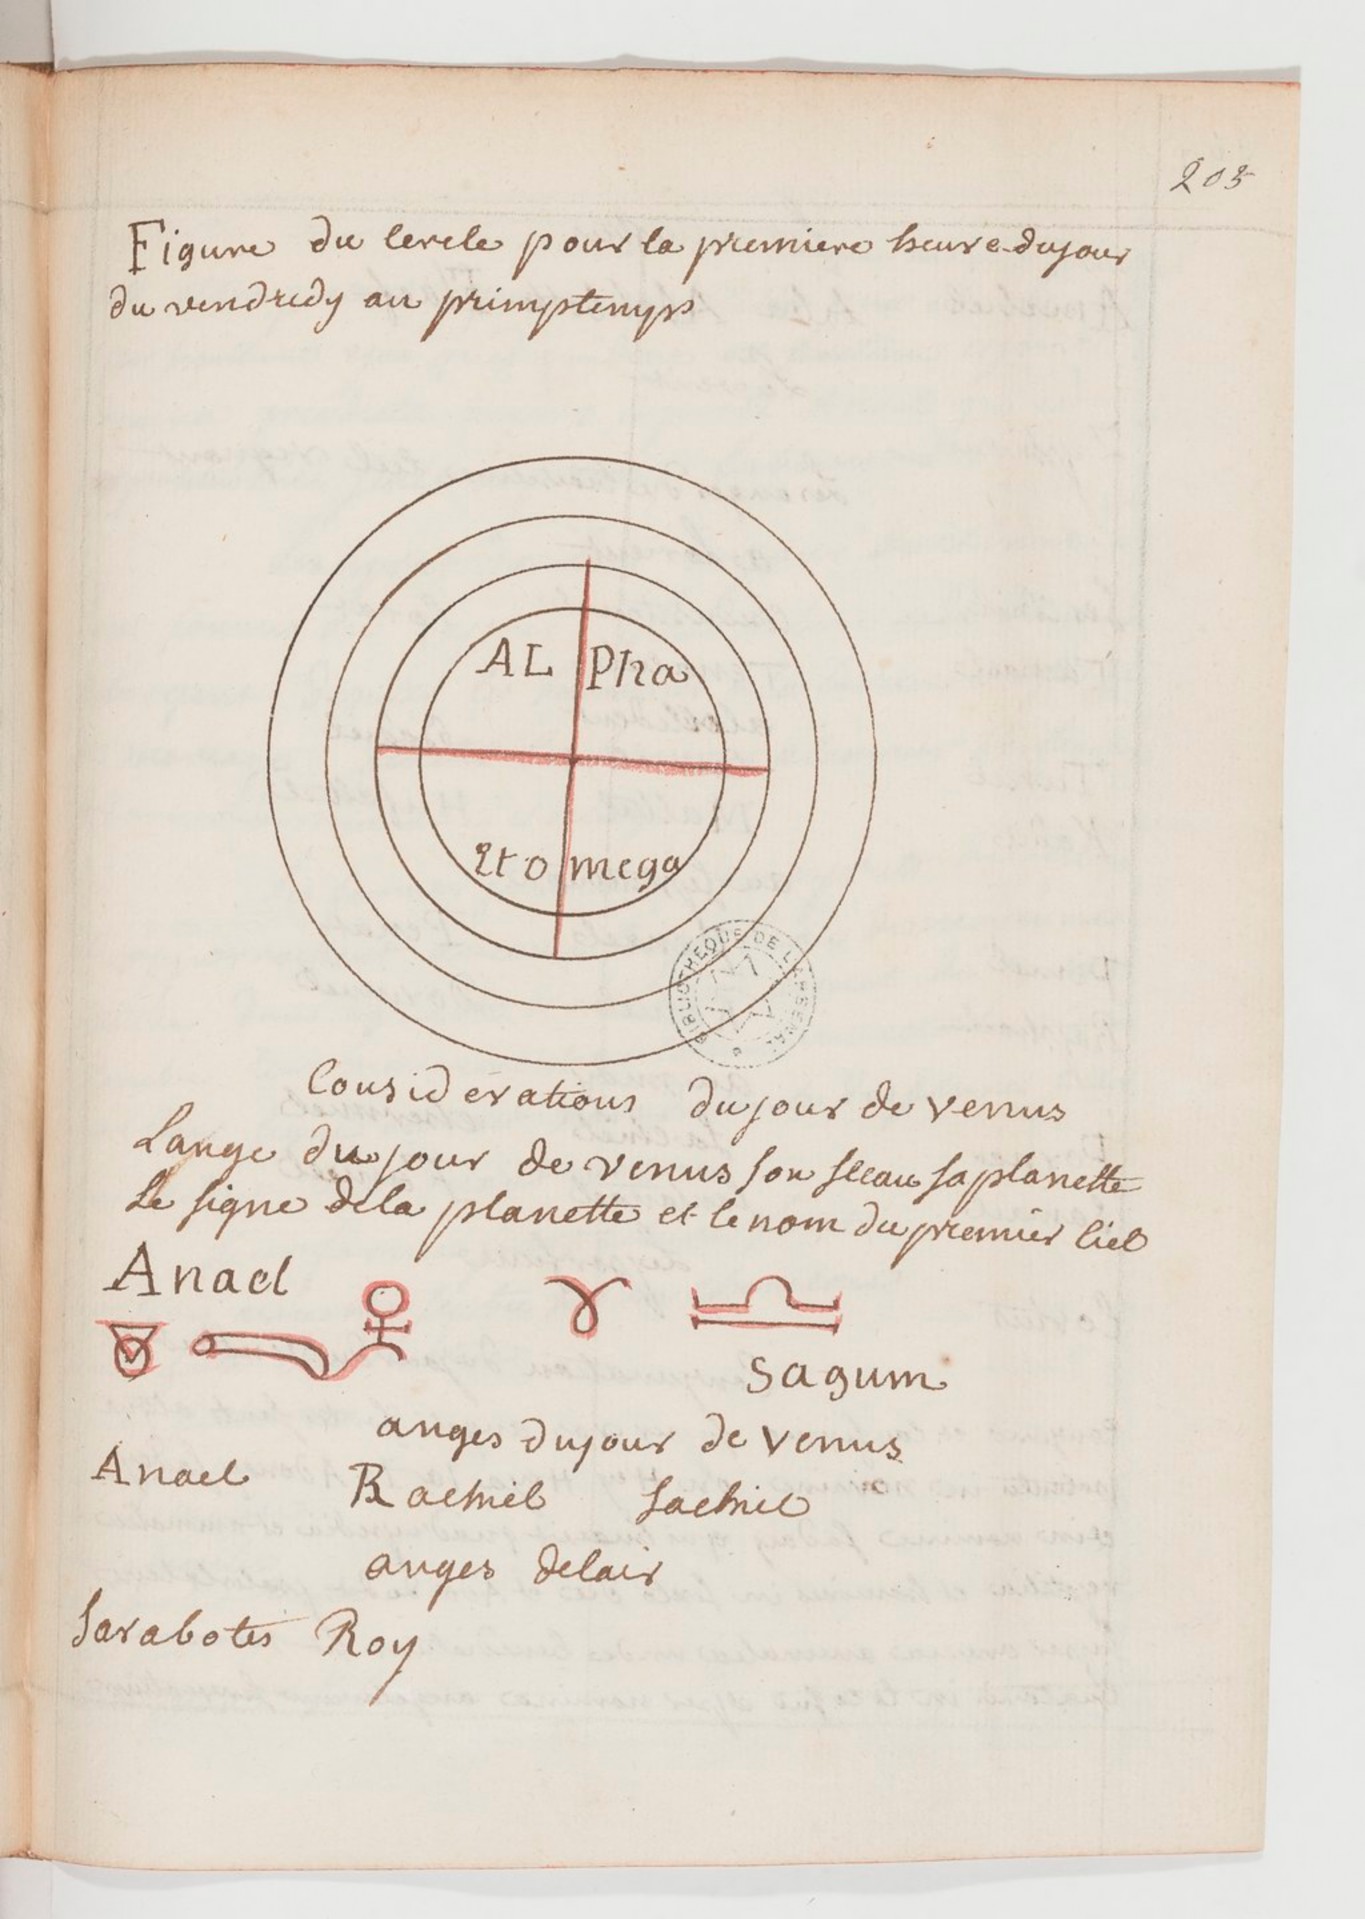 203
Figure du Cercle pour la premiere heure du jour
du vendredy au primptemps
AL Pha
Et o mega
BIBLIOTHEQUE DE L'ARSENAL
Considerations du jour de venus
Lange du jour de venus son sceau sa planette
Le signe de la planette et le nom du premier Ciel
Anael
Sagum
anges du jour de venus
Anael Rachiel Sachiel
anges delair
Sarabotes Roy